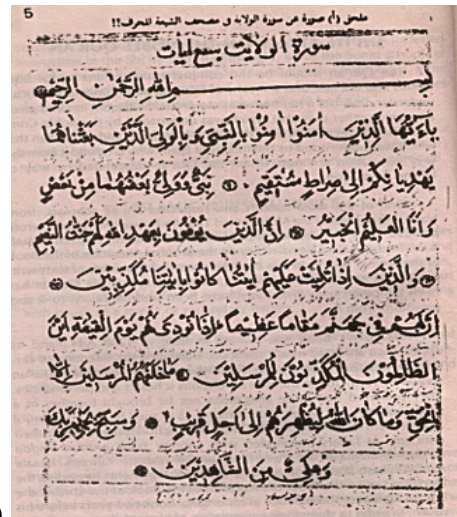 5
ملحق رقم صورة من سورة الولاية في مصحف الشيعة المحرف!!
سورة الولايت سبع ايات
بسم الله الرحمن الرحيم
يا ايها الذين امنوا امنوا بالنبي وبالولي الذين بعثناهما
يهديانكم الى صراط مستقيم نبي وولي بعضهما من بعض
وانا العليم الخبير ان الذين يوفون بعهد الله لهم جنت النعيم
والذين اذا تليت عليهم ايتنا كانوا بايتنا مكذبين
ان لهم في جهنم مقاما عظيما اذا نودي لهم يوم القيمة اين
الظالمون المكذبون للمرسلين ما خلفهم المرسلين الا
بالحق وما كان الله ليظهرهم الى اجل قريب وسبح بحمد ربك
وعلي من الشاهدين